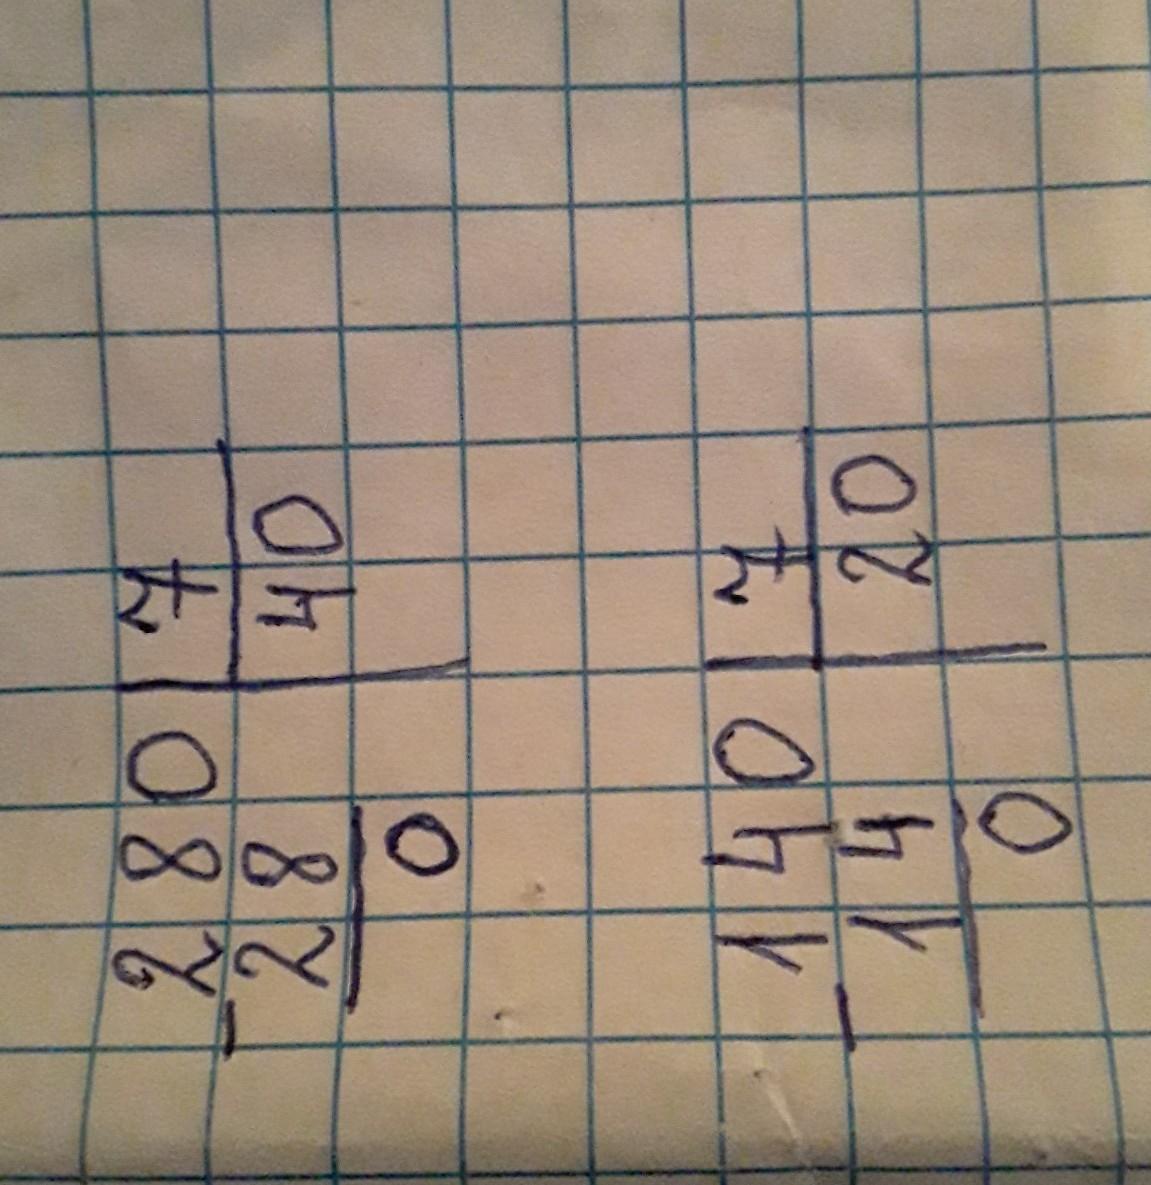 280 | 7
- 28 | 40
0
140 | 7
- 14 | 20
0